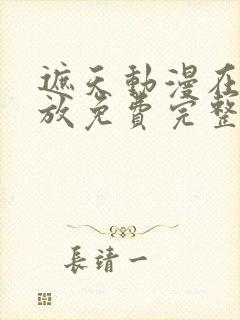 遮天動漫在
放免費完整
長靖一